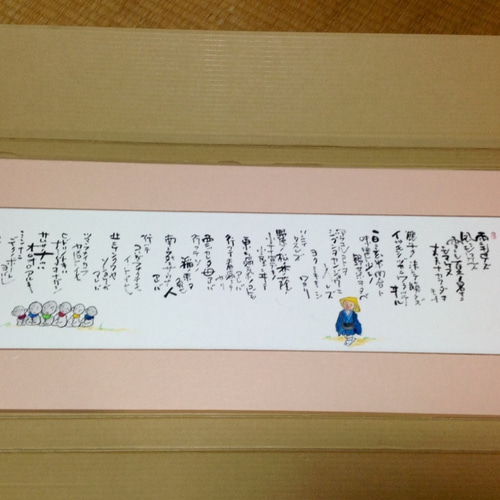 雨ニモマケズ
風ニモマケズ
雪ニモ夏ノ暑サニモ
マケヌ
丈夫ナカラダヲ
モチ
慾ナク決シテ瞋ラズ
イツモシヅカニワラッテ
ヰル
一日ニ玄米四合ト
味噌ト少シノ
野菜ヲタベ
アラユルコトヲ
ジブンヲカンジョウニ
入レズニ
ヨクミキキシ
ワカリ
ソシテ
ワスレズ
野原ノ松ノ林ノ蔭ノ
小サナ萱ブキノ
小屋ニヰテ
東ニ病気ノコドモアレバ
行ッテ看病シテヤリ
西ニツカレタ母アレバ
行ッテソノ
稲ノ束ヲ負ヒ
南ニ死ニサウナ人
アレバ
行ッテ
コハガラナクテモ
イイトイヒ
北ニケンクヮヤ
ソショウガ
アレバ
ツマラナイカラ
ヤメロトイヒ
ヒドリノトキハ
ナミダヲナガシ
サムサノナツハ
オロオロアルキ
ミンナニ
デクノボート
ヨバレ